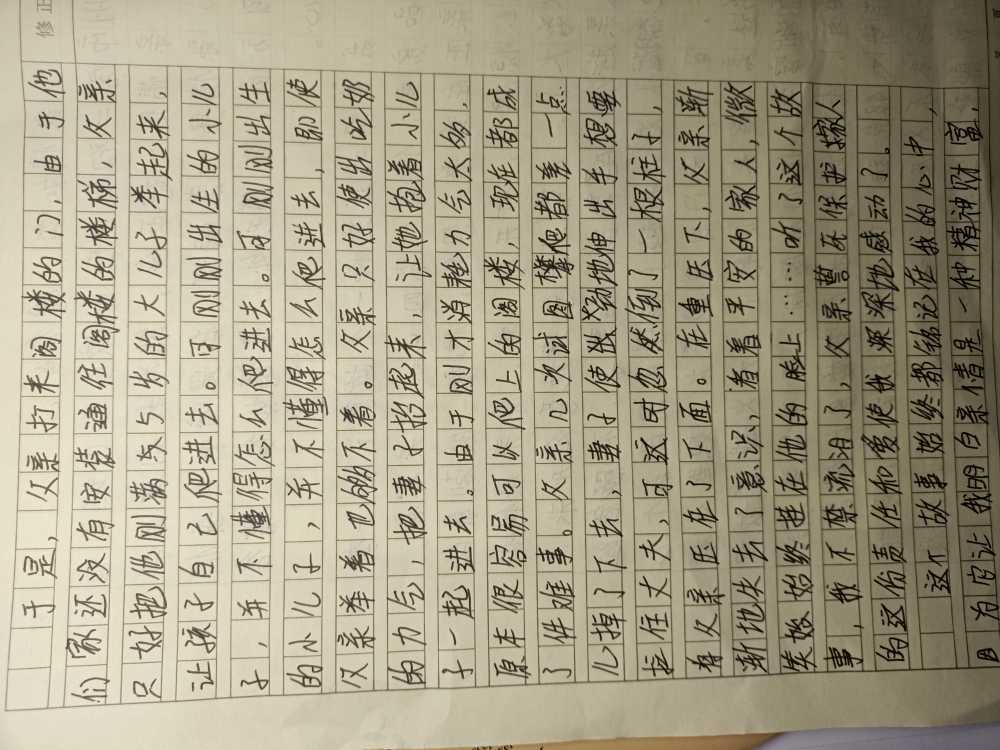 修正
于是，父亲打来阁楼的门，由于他
们家还没有安装通往阁楼的楼梯，父亲
只好把他刚满7岁的大儿子举起来，
让孩子自己爬进去。可刚刚出生的小儿
子，并不懂得怎么爬进去。可刚刚出生
的小儿子，并不懂得怎么爬进去，即使
父亲举着也够不着。父亲只好使出吃奶
的力气，把妻子抬起来，让她抱着小儿
子一起进去。由于刚才消耗力气太多，
原本很容易可以爬上的阁楼，现在都成
了件难事。父亲几次试图攀爬都差一点
儿掉了下去，妻子使劲地伸出手想要
拉住丈夫，可这时忽然倒了一根柱子，
将父亲压在了下面。在重压下，父亲渐
渐地失去了意识，看着平安的家人，微
笑始终挂在他的脸上……听了这个故
事，我不禁流泪了，父亲誓死保护家人
的这份责任和爱使我深深地感动了。
这个故事始终都铭记在我的心中，
因为它让我明白亲情是一种精神财富，